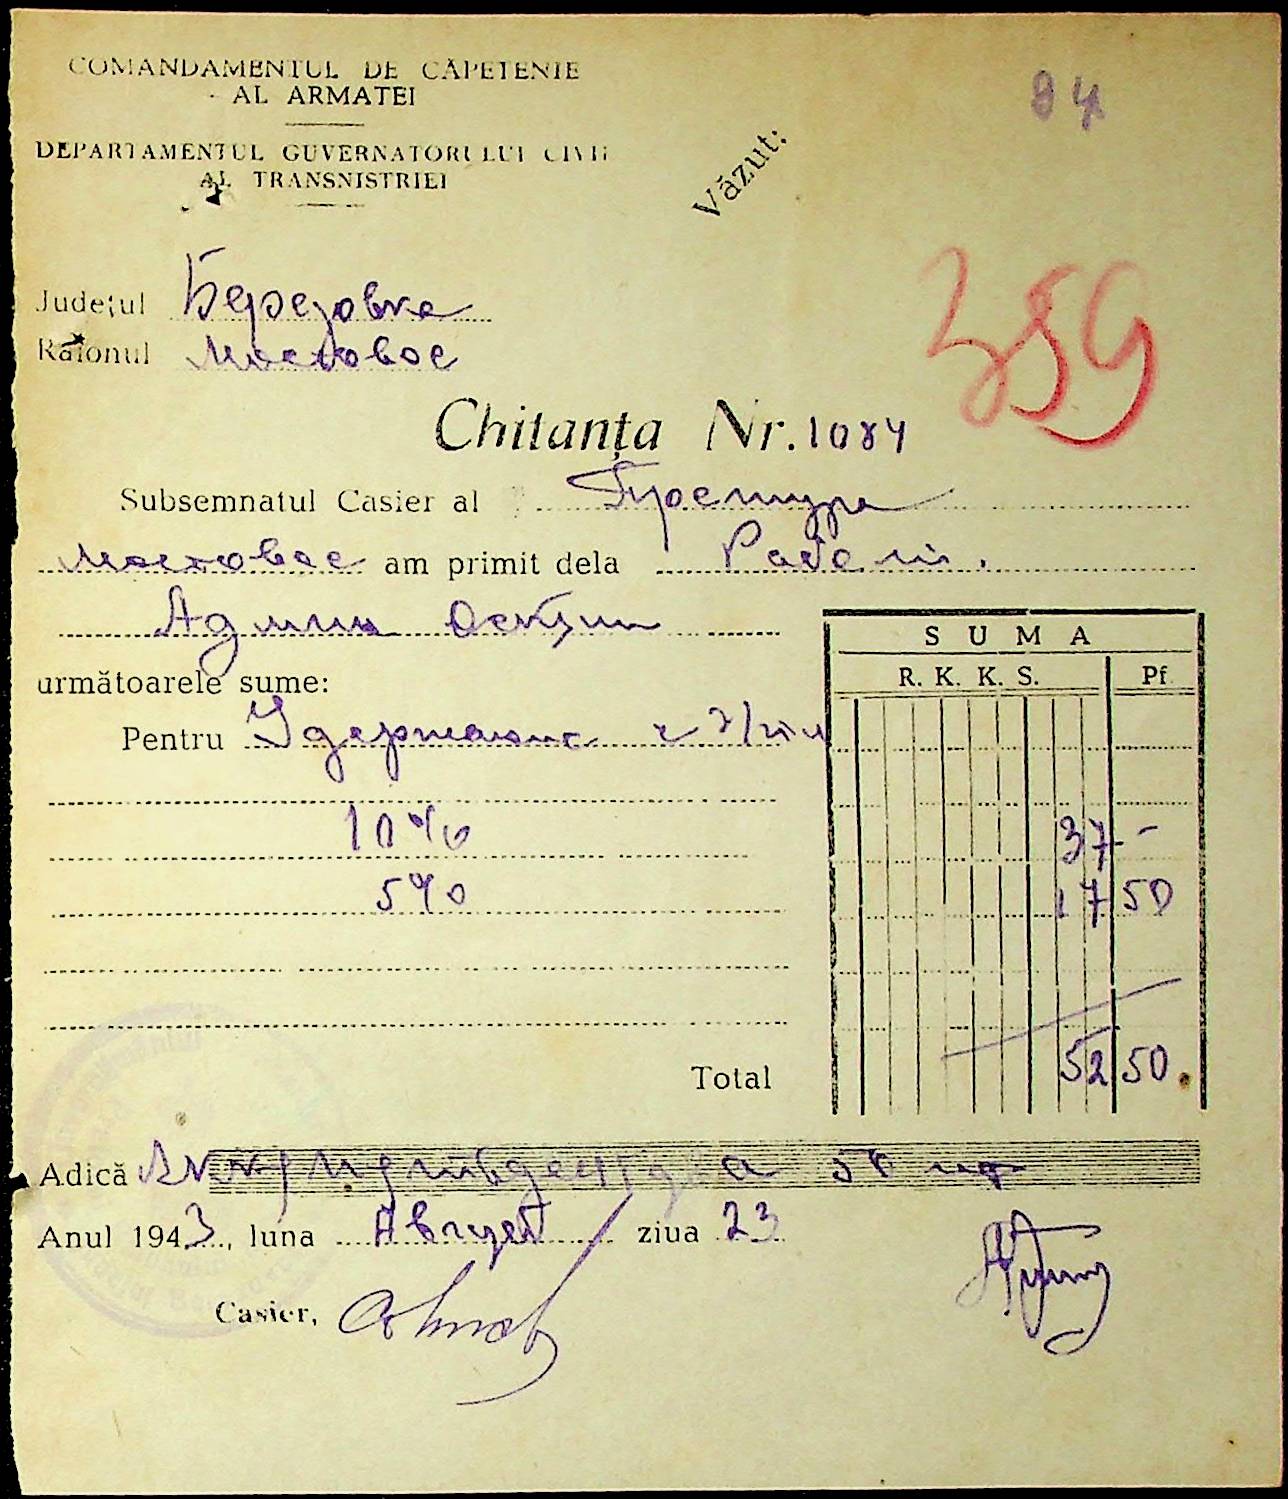 COMANDAMENTUL DE CĂPETENIE
AL ARMATEI
94
DEPARTAMENTUL GUVERNATORULUI CIVIL
AL TRANSNISTRIEI
Văzut:
359
Județul Березовка
Raionul Мостовое
Chitanța Nr. 1084
Subsemnatul Casier al Претура
Мостовое am primit dela
Админ
următoarele sume:
SUMA
R. K. K. S. Pf.
Pentru Удержание
10% 37 -
5% 17 50
Total 52 50
Adică
Anul 1943, luna Август ziua 23
Casier,